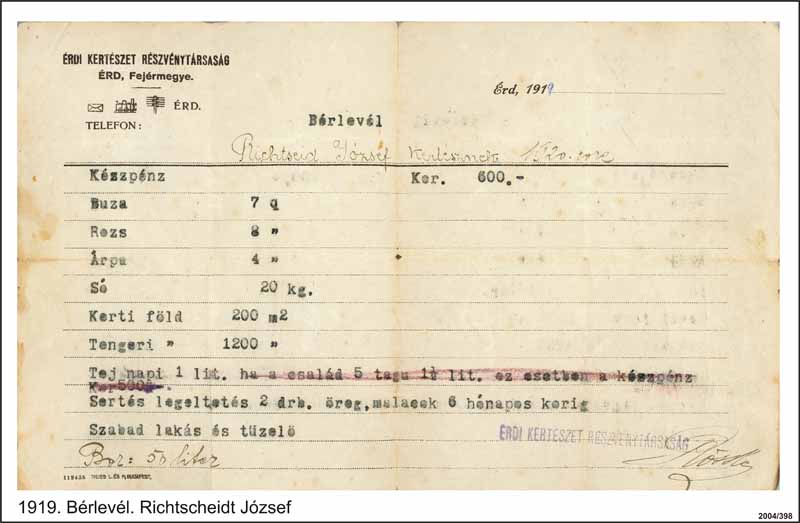 ÉRDI KERTÉSZET RÉSZVÉNYTÁRSASÁG
ÉRD, Fejérmegye.
ÉRD.
TELEFON:
Érd, 1919
Bérlevél
Richtseid József Kertésznek 1920. évre
Készpénz Kor. 600.-
Buza 7 q
Rozs 8 "
Árpa 4 "
Só 20 kg.
Kerti föld 200 m2
Tengeri " 1200 "
Tej napi 1 lit. ha a család 5 tagu 1½ lit. ez esetben a készpénz
Kor 500.-
Sertés legeltetés 2 drb. öreg, malacok 6 hónapos korig
Szabad lakás és tüzelö
ÉRDI KERTÉSZET RÉSZVÉNYTÁRSASÁG
Bor: 50 liter
1919. Bérlevél. Richtscheidt József
2004/398